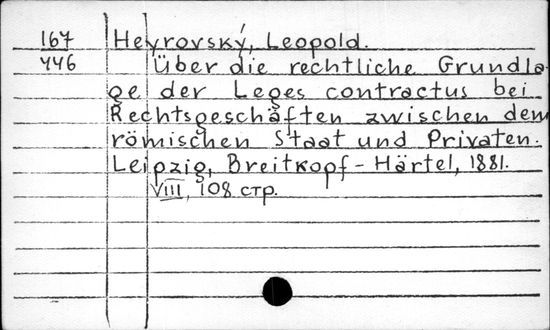 167 Heyrovský, Leopold.
446 Über die rechtliche Grundla-
ge der Leges contractus bei
Rechtsgeschäften zwischen dem
römischen Staat und Privaten.
Leipzig, Breitkopf-Härtel, 1881.
VIII, 108 стр.